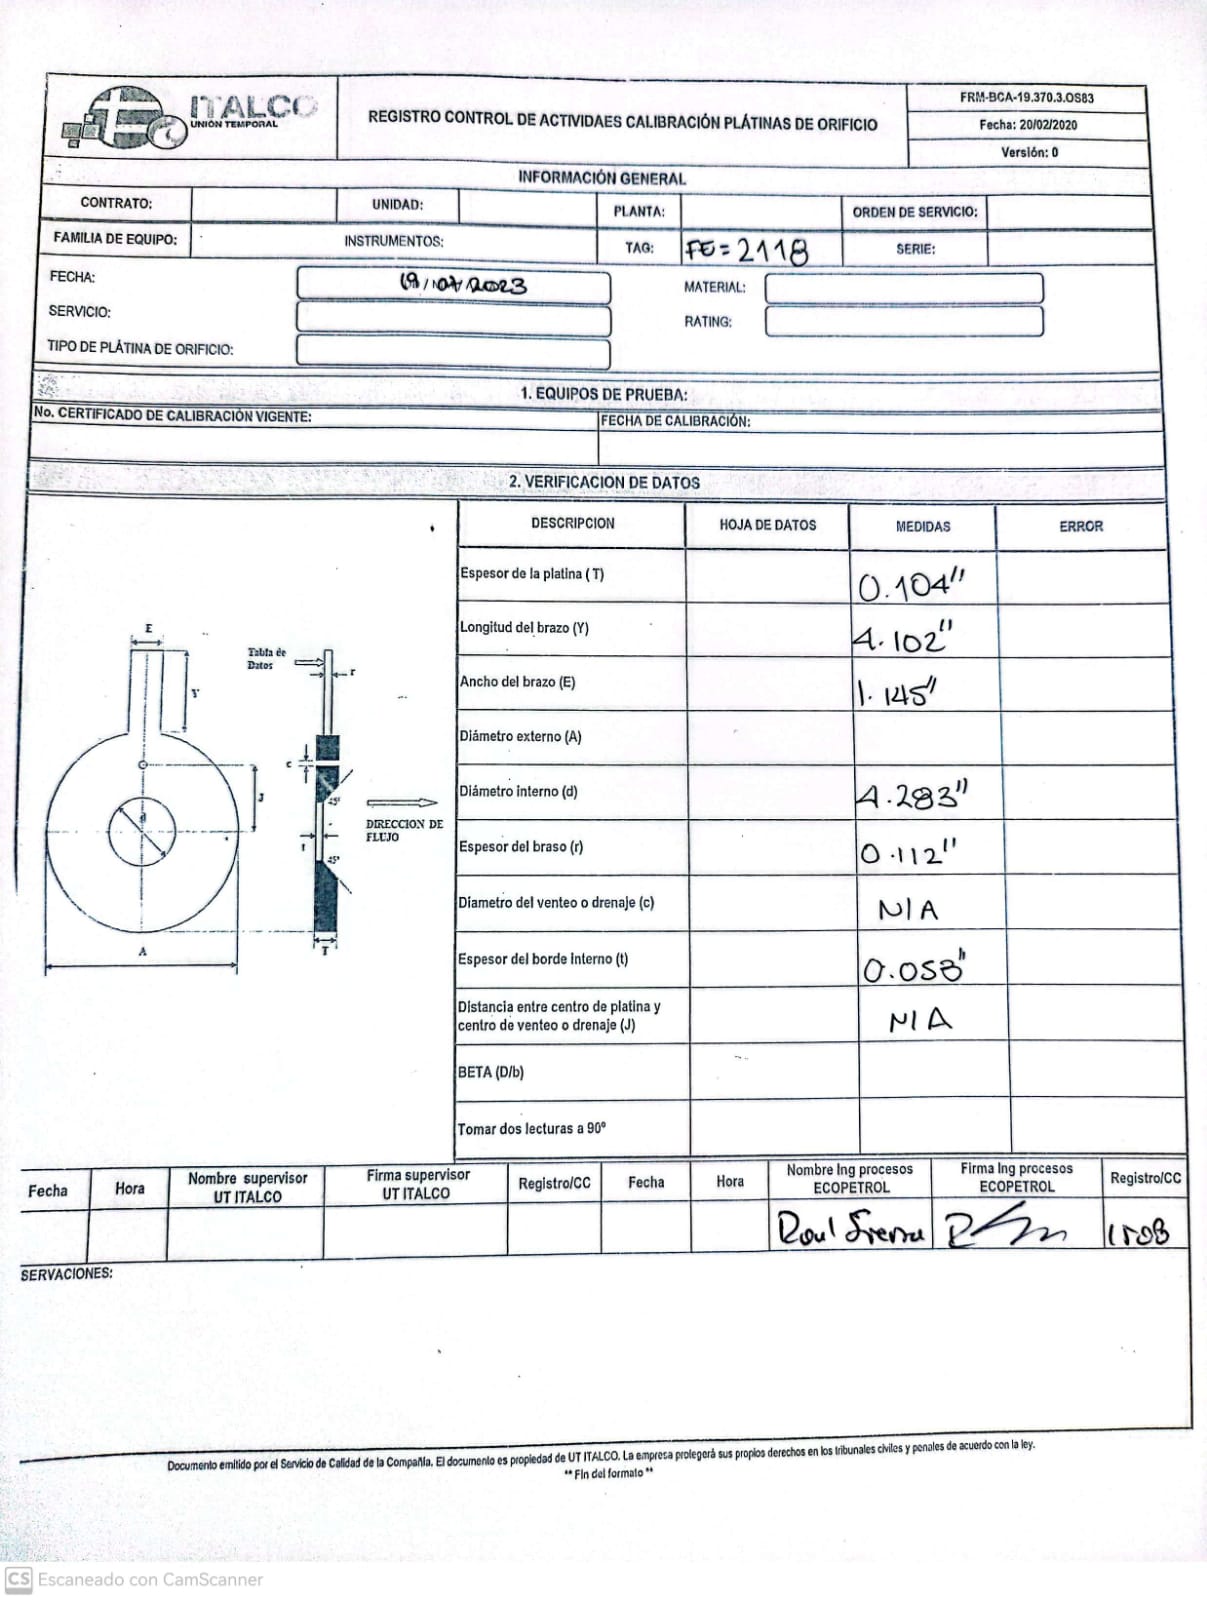 ITALCO
UNIÓN TEMPORAL
REGISTRO CONTROL DE ACTIVIDAES CALIBRACIÓN PLÁTINAS DE ORIFICIO
FRM-BCA-19.370.3.OS83
Fecha: 20/02/2020
Versión: 0
INFORMACIÓN GENERAL
CONTRATO: UNIDAD: PLANTA: ORDEN DE SERVICIO:
FAMILIA DE EQUIPO: INSTRUMENTOS: TAG: FE=2118 SERIE:
FECHA: 19/07/2023 MATERIAL:
SERVICIO: RATING:
TIPO DE PLÁTINA DE ORIFICIO:
1. EQUIPOS DE PRUEBA:
No. CERTIFICADO DE CALIBRACIÓN VIGENTE: FECHA DE CALIBRACIÓN:
2. VERIFICACION DE DATOS
DESCRIPCION HOJA DE DATOS MEDIDAS ERROR
Espesor de la platina (T) 0.104"
Longitud del brazo (Y) 4.102"
Ancho del brazo (E) 1.145"
Diámetro externo (A)
Diámetro interno (d) 4.283"
Espesor del braso (r) 0.112"
Diametro del venteo o drenaje (c) N/A
Espesor del borde Interno (t) 0.058"
Distancia entre centro de platina y
centro de venteo o drenaje (J) N/A
BETA (D/b)
Tomar dos lecturas a 90º
E
Y
Tabla de
Datos
r
c
J
d
45°
DIRECCION DE
FLUJO
t
45°
A
T
Fecha Hora Nombre supervisor
UT ITALCO Firma supervisor
UT ITALCO Registro/CC Fecha Hora Nombre Ing procesos
ECOPETROL Firma Ing procesos
ECOPETROL Registro/CC
Raul Sierra
SERVACIONES:
Documento emitido por el Servicio de Calidad de la Compañía. El documento es propiedad de UT ITALCO. La empresa protegerá sus propios derechos en los tribunales civiles y penales de acuerdo con la ley.
** Fin del formato **
CS Escaneado con CamScanner